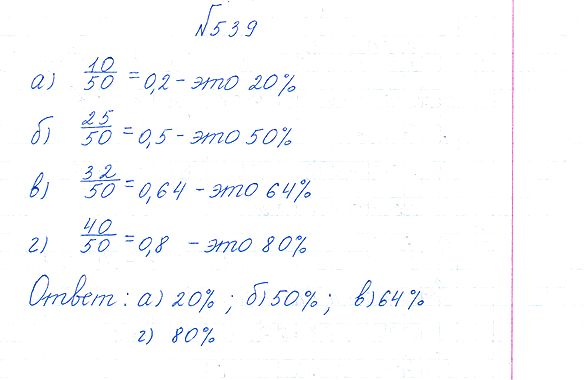 №539
а) 10/50 = 0,2 - это 20%
б) 25/50 = 0,5 - это 50%
в) 32/50 = 0,64 - это 64%
г) 40/50 = 0,8 - это 80%
Ответ: а) 20% ; б) 50% ; в) 64%
г) 80%